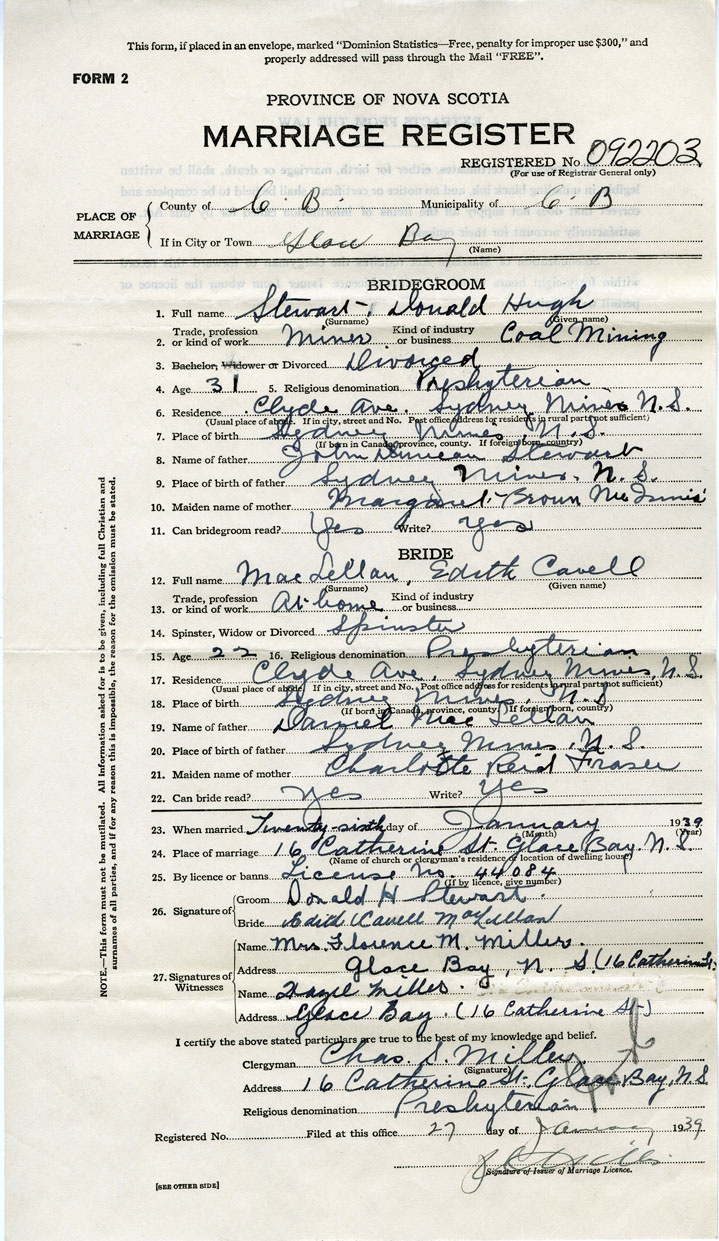 This form, if placed in an envelope, marked "Dominion Statistics—Free, penalty for improper use $300," and
properly addressed will pass through the Mail "FREE".
FORM 2
PROVINCE OF NOVA SCOTIA
MARRIAGE REGISTER
REGISTERED No. 092203
(For use of Registrar General only)
PLACE OF MARRIAGE
County of C. B. Municipality of C B
If in City or Town Glace Bay
(Name)
BRIDEGROOM
1. Full name Stewart, Donald Hugh
(Surname) (Given name)
2. Trade, profession or kind of work Miner Kind of industry or business Coal Mining
3. Bachelor, Widower or Divorced Divorced
4. Age 31 5. Religious denomination Presbyterian
6. Residence Clyde Ave. Sydney Mines N.S.
(Usual place of abode. If in city, street and No. Post office address for residents in rural parts not sufficient)
7. Place of birth Sydney Mines, N.S.
(If born in Canada, province, county. If foreign born, country)
8. Name of father John Duncan Stewart
9. Place of birth of father Sydney Mines, N.S.
10. Maiden name of mother Margaret Brown
11. Can bridegroom read? Yes Write? Yes
BRIDE
12. Full name MacLellan, Edith Cavell
(Surname) (Given name)
13. Trade, profession or kind of work At home Kind of industry or business
14. Spinster, Widow or Divorced Spinster
15. Age 22 16. Religious denomination Presbyterian
17. Residence Clyde Ave, Sydney Mines, N.S.
(Usual place of abode. If in city, street and No. Post office address for residents in rural parts not sufficient)
18. Place of birth Sydney Mines, N.S
(If born in Canada, province, county. If foreign born, country)
19. Name of father Daniel MacLellan
20. Place of birth of father Sydney Mines, N.S.
21. Maiden name of mother Charlotte Reid Fraser
22. Can bride read? Yes Write? Yes
23. When married Twenty-sixth day of January 1939
(Month) (Year)
24. Place of marriage 16 Catherine St. Glace Bay, N.S.
(Name of church or clergyman's residence or location of dwelling house)
25. By licence or banns License No. 44084
(If by licence, give number)
26. Signature of
Groom Donald H Stewart
Bride Edith Cavell McLellan
27. Signatures of Witnesses
Name Mrs. Florence M. Miller.
Address Glace Bay, N.S. (16 Catherine St.
Name Hazel Miller.
Address Glace Bay. (16 Catherine St)
I certify the above stated particulars are true to the best of my knowledge and belief.
Clergyman Chas. S. Miller
(Signature)
Address 16 Catherine St. Glace Bay, N.S.
Religious denomination Presbyterian
Registered No. Filed at this office 27 day of January 1939
Signature of Issuer of Marriage Licence.
[SEE OTHER SIDE]
NOTE.—This form must not be mutilated. All information asked for is to be given, including full Christian and
surnames of all parties, and if for any reason this is impossible, the reason for the omission must be stated.